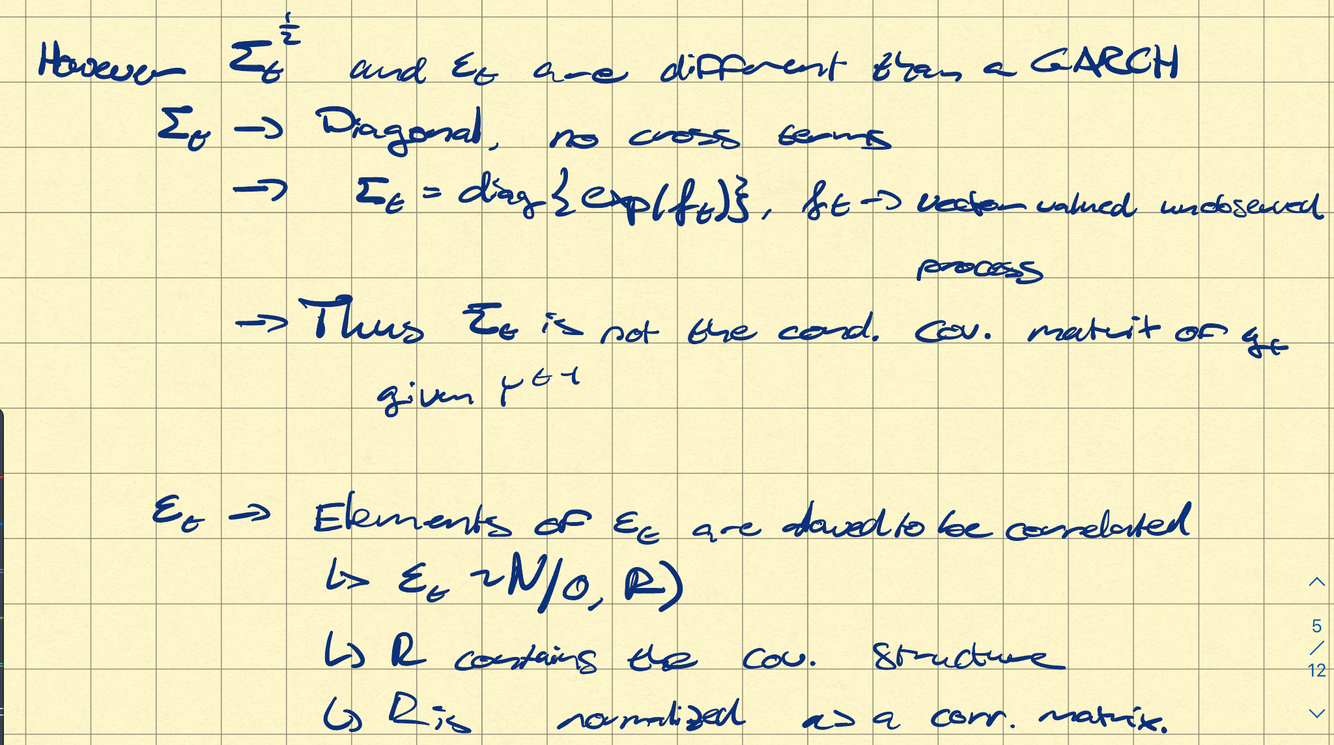 However Σₜ^½ and εₜ are different than a GARCH
Σₜ → Diagonal, no cross terms
→ Σₜ = diag{exp(fₜ)}, fₜ → vector valued unobserved
process
→ Thus Σₜ is not the cond. cov. matrix of yₜ
given Y^{t-1}
εₜ → Elements of εₜ are alowed to be correlated
↳ εₜ ~ N(0, R)
↳ R contains the cov. structure
↳ R is normalized as a corr. matrix.
5
/
12